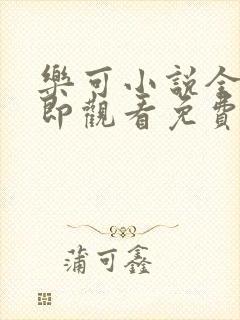 樂可小説全
即觀看免費
蒲可鑫